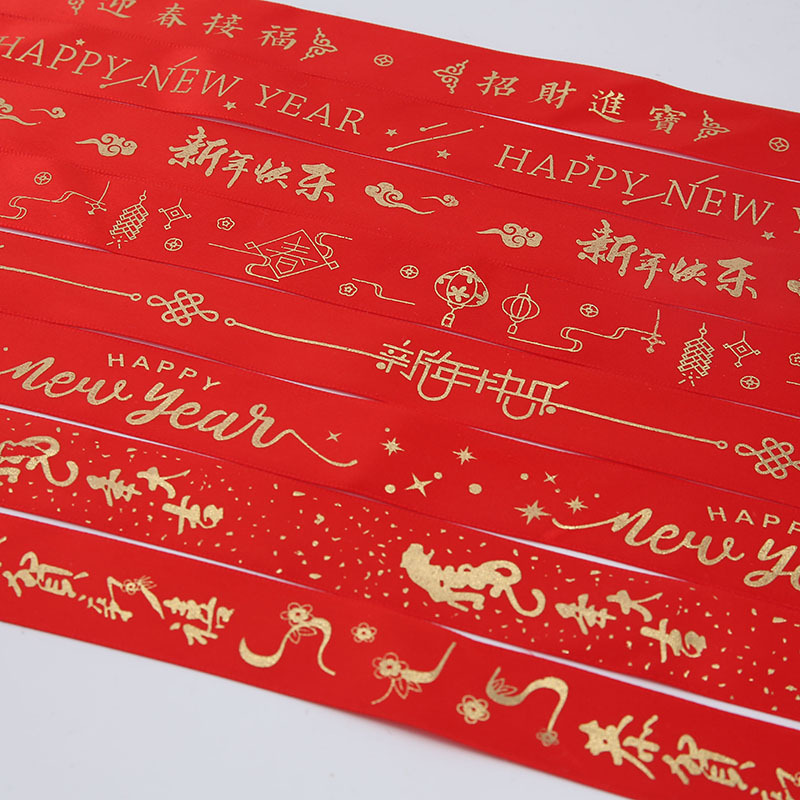 迎春接福 招財進寶
HAPPY NEW YEAR HAPPY NEW Y
新年快乐 新年快乐
春
新年快乐
HAPPY
new year
HAPP
new ye
年大吉 年大吉
賀新禧 恭賀新